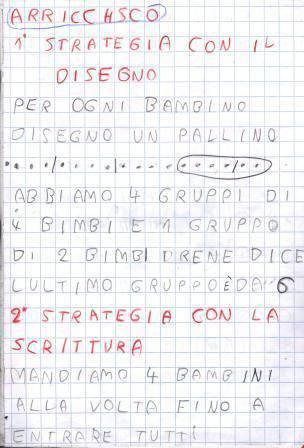 ARRICCHSCO
1° STRATEGIA CON IL
DISEGNO
PER OGNI BAMBINO
DISEGNO UN PALLINO
ABBIAMO 4 GRUPPI DI
4 BIMBI E 1 GRUPPO
DI 2 BIMBI IRENE DICE
LULTIMO GRUPPO È DA 6
2° STRATEGIA CON LA
SCRITTURA
MANDIAMO 4 BAMBINI
ALLA VOLTA FINO A
ENTRARE TUTTI